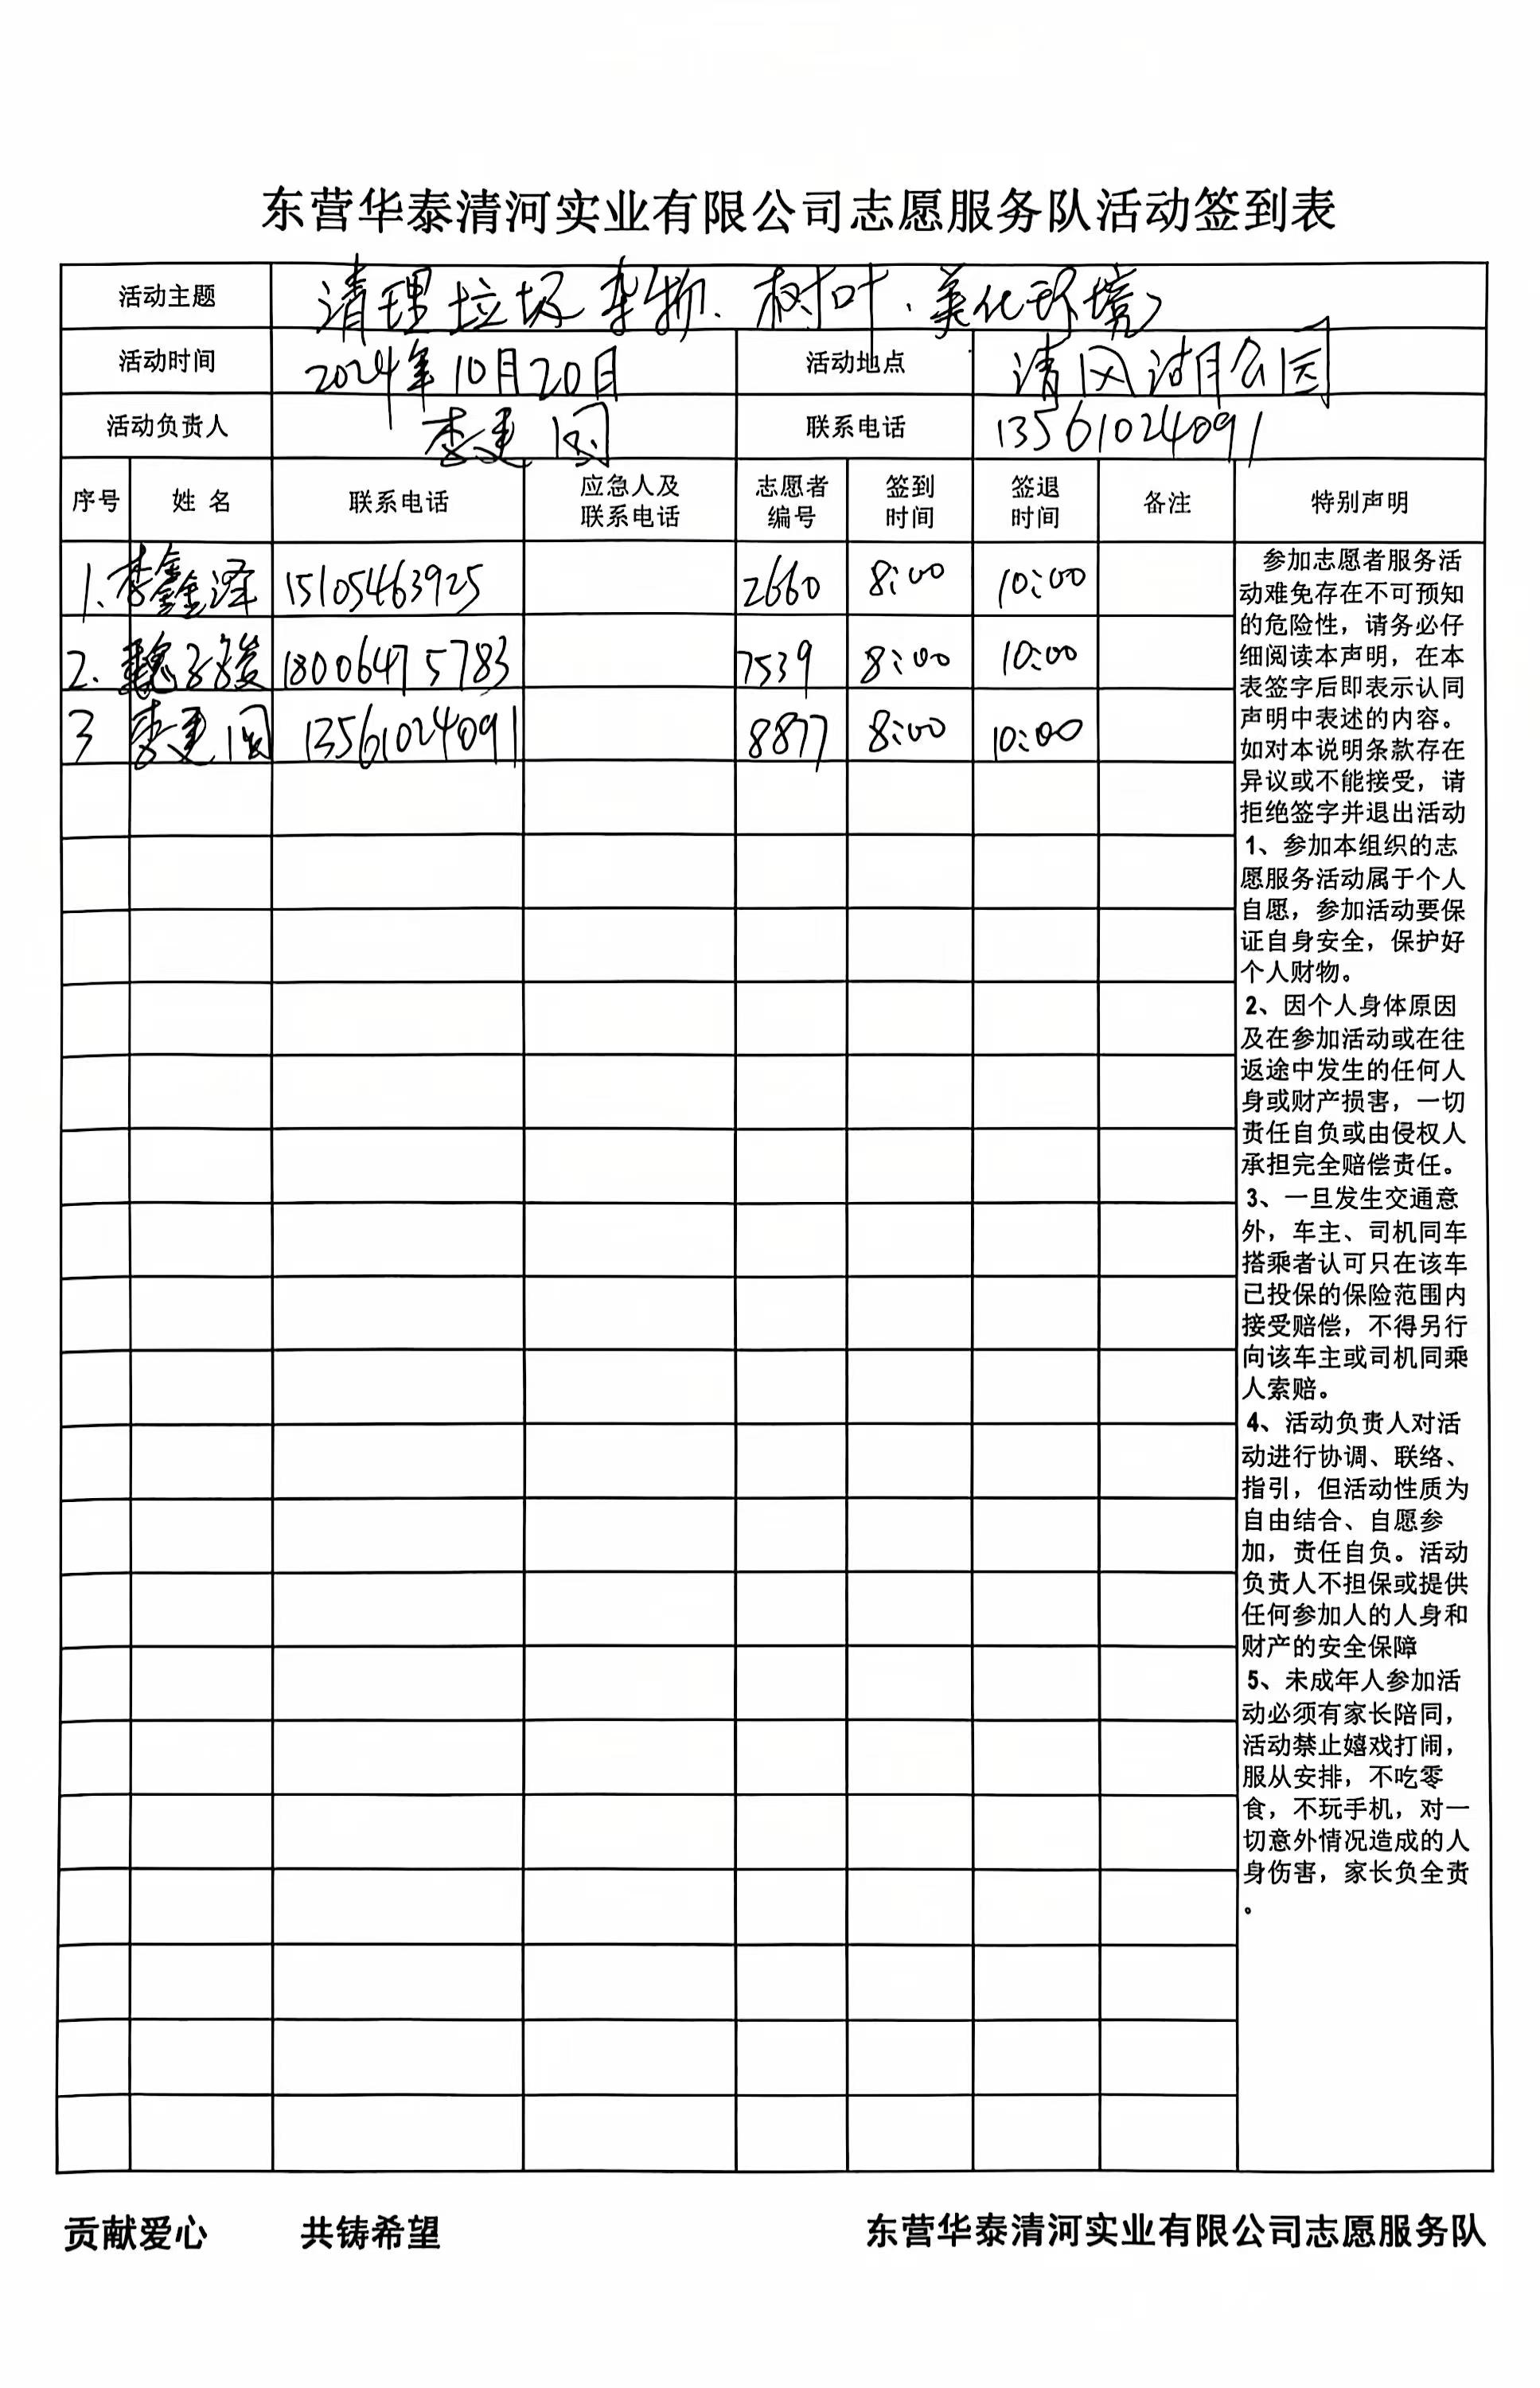 东营华泰清河实业有限公司志愿服务队活动签到表
活动主题 清理垃圾杂物、树叶、美化环境
活动时间 2024年10月20日 活动地点 清风湖公园
活动负责人 李建国 联系电话 13561024091
序号 姓名 联系电话 应急人及联系电话 志愿者编号 签到时间 签退时间 备注 特别声明
1. 李鑫泽 15105463925 2660 8:00 10:00
2. 魏子骏 18006475783 7539 8:00 10:00
3 李建国 13561024091 8877 8:00 10:00
参加志愿者服务活
动难免存在不可预知
的危险性，请务必仔
细阅读本声明，在本
表签字后即表示认同
声明中表述的内容。
如对本说明条款存在
异议或不能接受，请
拒绝签字并退出活动
1、参加本组织的志
愿服务活动属于个人
自愿，参加活动要保
证自身安全，保护好
个人财物。
2、因个人身体原因
及在参加活动或在往
返途中发生的任何人
身或财产损害，一切
责任自负或由侵权人
承担完全赔偿责任。
3、一旦发生交通意
外，车主、司机同车
搭乘者认可只在该车
已投保的保险范围内
接受赔偿，不得另行
向该车主或司机同乘
人索赔。
4、活动负责人对活
动进行协调、联络、
指引，但活动性质为
自由结合、自愿参
加，责任自负。活动
负责人不担保或提供
任何参加人的人身和
财产的安全保障
5、未成年人参加活
动必须有家长陪同，
活动禁止嬉戏打闹，
服从安排，不吃零
食，不玩手机，对一
切意外情况造成的人
身伤害，家长负全责
。
贡献爱心 共铸希望 东营华泰清河实业有限公司志愿服务队